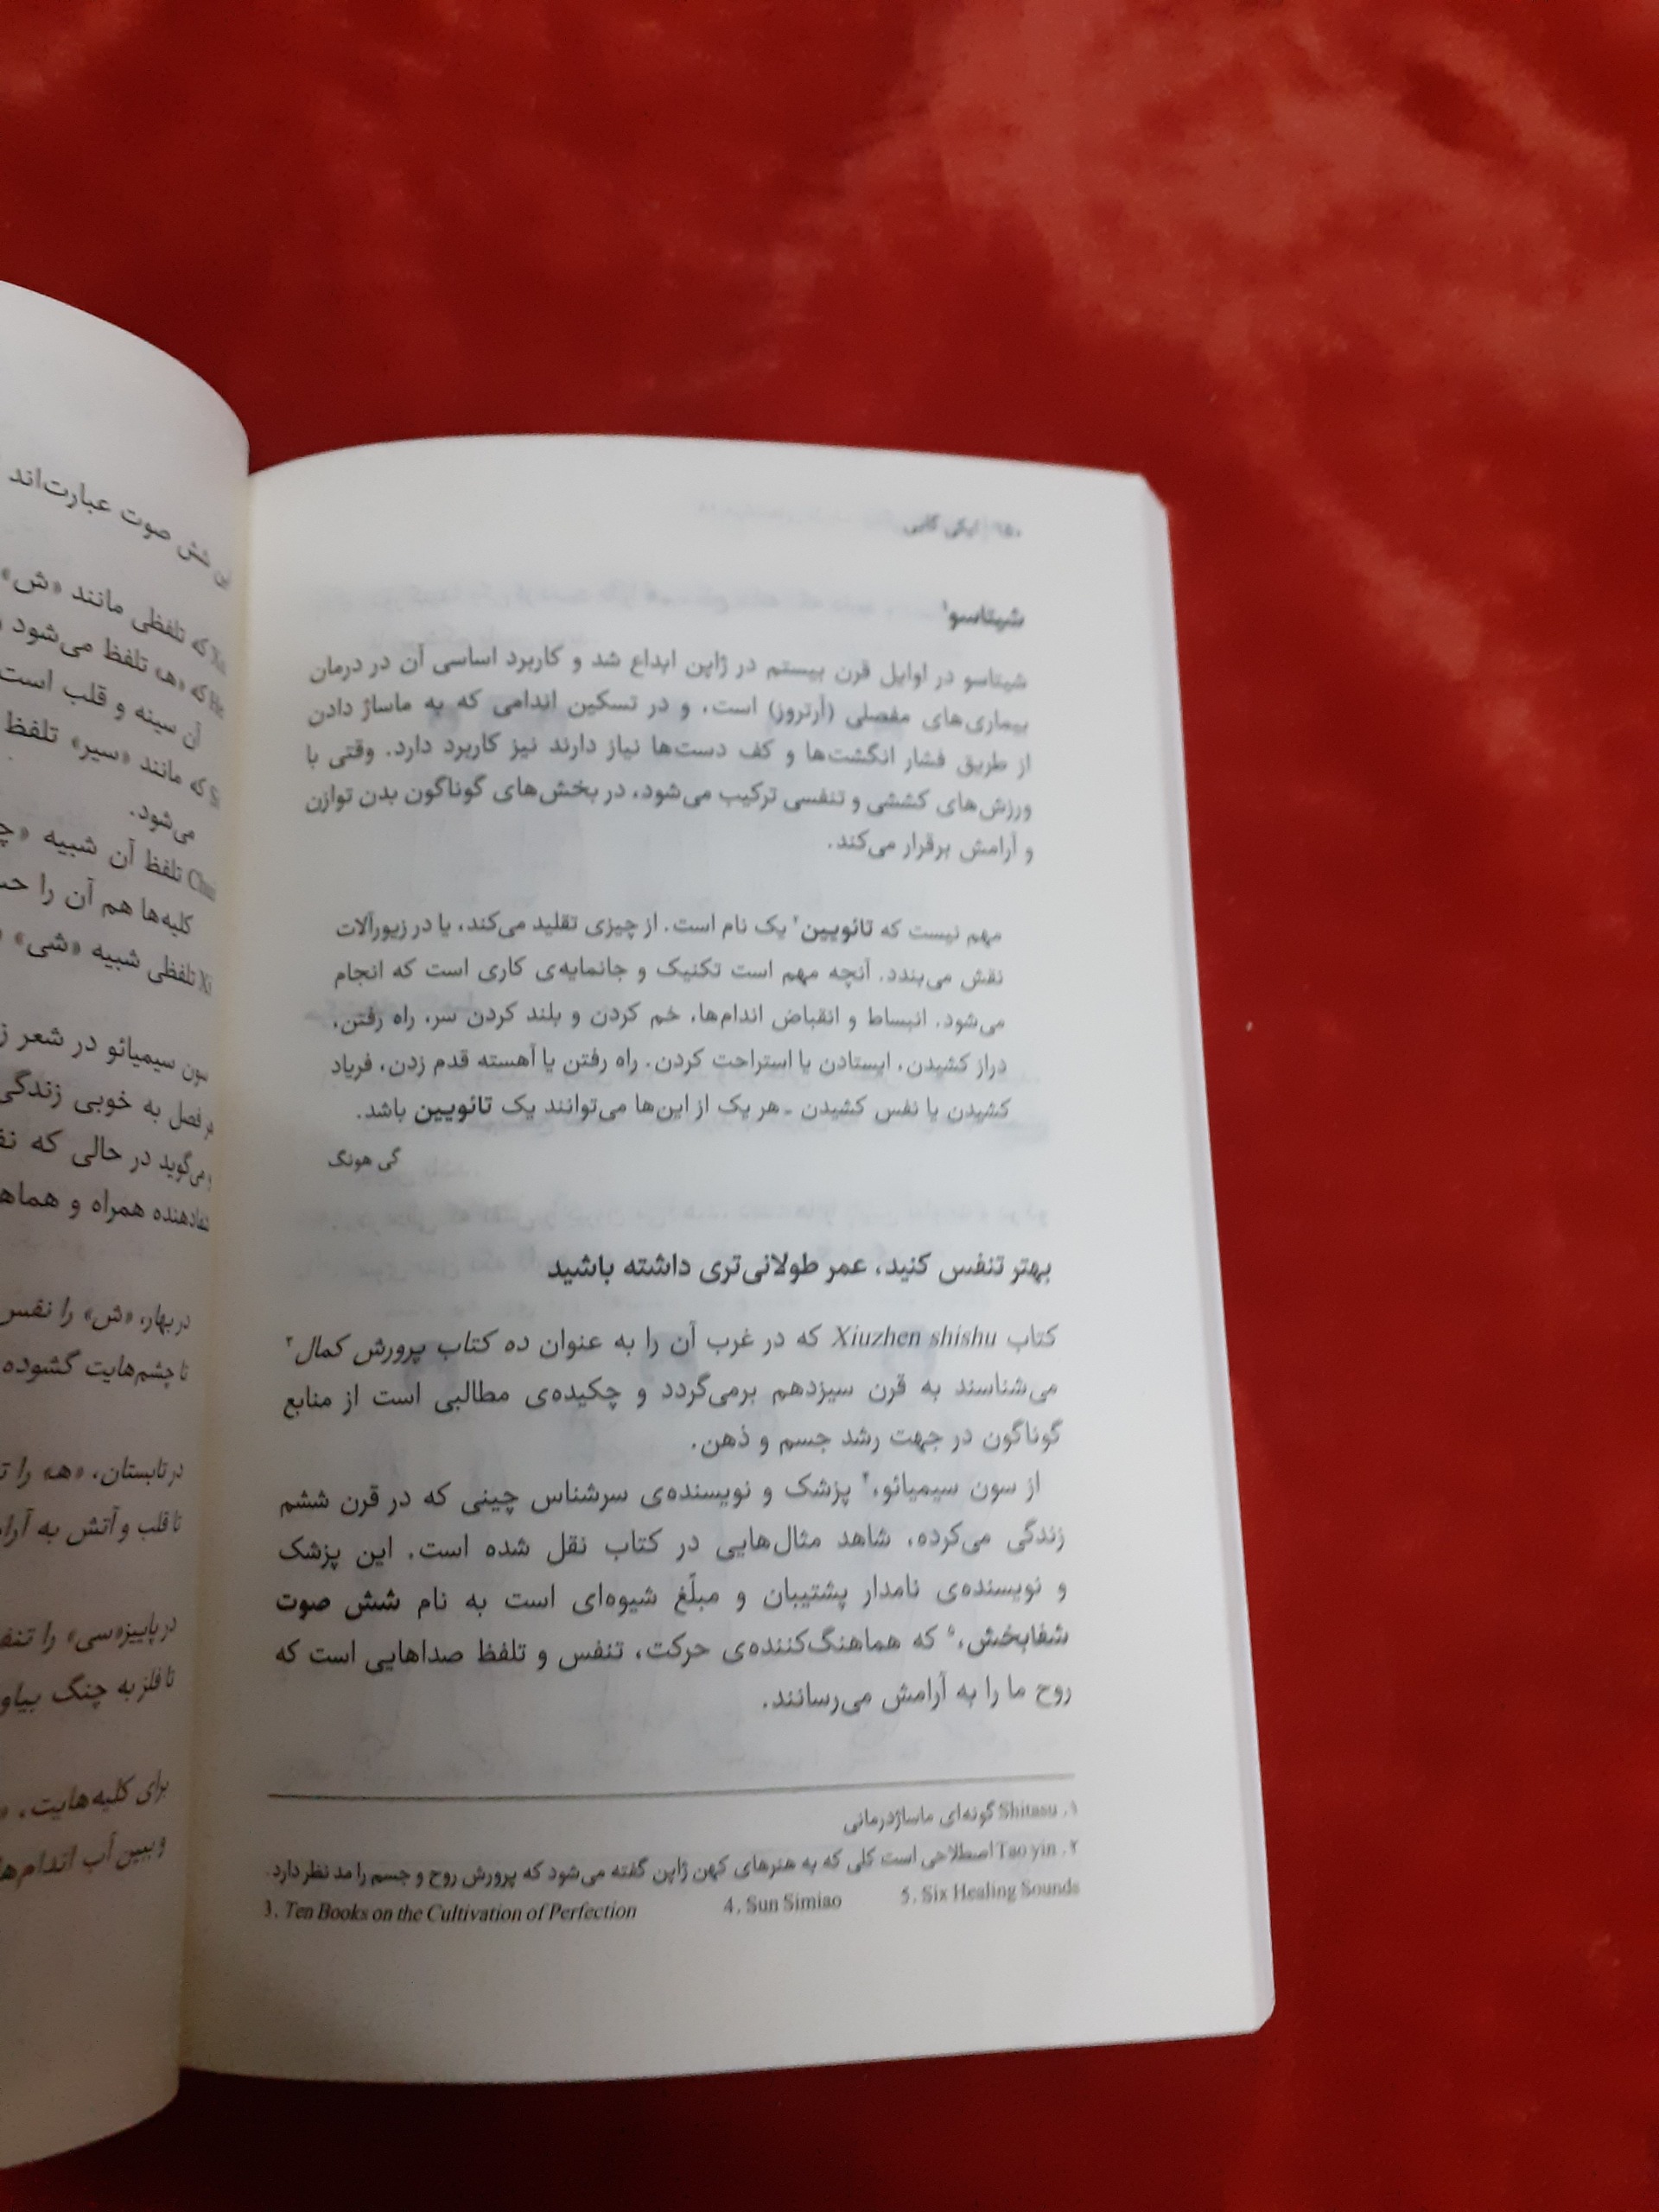 ایکی گایی
شیتاسو¹
شیتاسو در اوایل قرن بیستم در ژاپن ابداع شد و کاربرد اساسی آن در درمان
بیماری‌های مفصلی (آرتروز) است، و در تسکین اندامی که به ماساژ دادن
از طریق فشار انگشت‌ها و کف دست‌ها نیاز دارند نیز کاربرد دارد. وقتی با
ورزش‌های کششی و تنفسی ترکیب می‌شود، در بخش‌های گوناگون بدن توازن
و آرامش برقرار می‌کند.
مهم نیست که تائویین² یک نام است. از چیزی تقلید می‌کند، یا در زیورآلات
نقش می‌بندد. آنچه مهم است تکنیک و جانمایه‌ی کاری است که انجام
می‌شود. انبساط و انقباض اندام‌ها، خم کردن و بلند کردن سر، راه رفتن،
دراز کشیدن، ایستادن یا استراحت کردن. راه رفتن یا آهسته قدم زدن، فریاد
کشیدن یا نفس کشیدن - هر یک از این‌ها می‌توانند یک تائویین باشد.
گی هونگ
بهتر تنفس کنید، عمر طولانی‌تری داشته باشید
کتاب Xiuzhen shishu که در غرب آن را به عنوان ده کتاب پرورش کمال³
می‌شناسند به قرن سیزدهم برمی‌گردد و چکیده‌ی مطالبی است از منابع
گوناگون در جهت رشد جسم و ذهن.
از سون سیمیائو،⁴ پزشک و نویسنده‌ی سرشناس چینی که در قرن ششم
زندگی می‌کرده، شاهد مثال‌هایی در کتاب نقل شده است. این پزشک
و نویسنده‌ی نامدار پشتیبان و مبلّغ شیوه‌ای است به نام شش صوت
شفابخش،⁵ که هماهنگ‌کننده‌ی حرکت، تنفس و تلفظ صداهایی است که
روح ما را به آرامش می‌رسانند.
۱. Shitasu گونه‌ای ماساژدرمانی
۲. Tao yin اصطلاحی است کلی که به هنرهای کهن ژاپن گفته می‌شود که پرورش روح و جسم را مد نظر دارد.
3. Ten Books on the Cultivation of Perfection 4. Sun Simiao 5. Six Healing Sounds
این شش صوت عبارت‌اند
که تلفظی مانند «ش»
He که «هـ» تلفظ می‌شود
آن سینه و قلب است
Si که مانند «سیر» تلفظ
می‌شود.
Chui تلفظ آن شبیه
کلیه‌ها هم آن را
Xi تلفظی شبیه «شی»
سون سیمیائو در شعر
هر فصل به خوبی زندگی
می‌گوید در حالی که
شفادهنده همراه و
در بهار، «ش» را نفس
تا چشم‌هایت گشوده
در تابستان، «هـ» را
تا قلب و آتش به
در پاییز «سی» را
تا فلز به چنگ
برای کلیه‌هایت،
و ببین آب